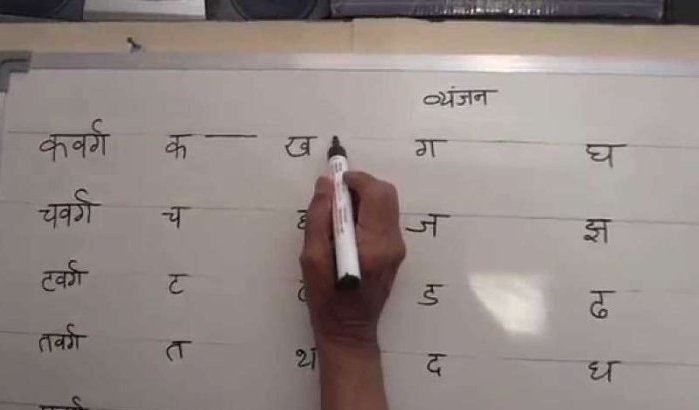 व्यंजन
कवर्ग क — ख ग घ
चवर्ग च ज झ
टवर्ग ट ड ढ
तवर्ग त थ द ध